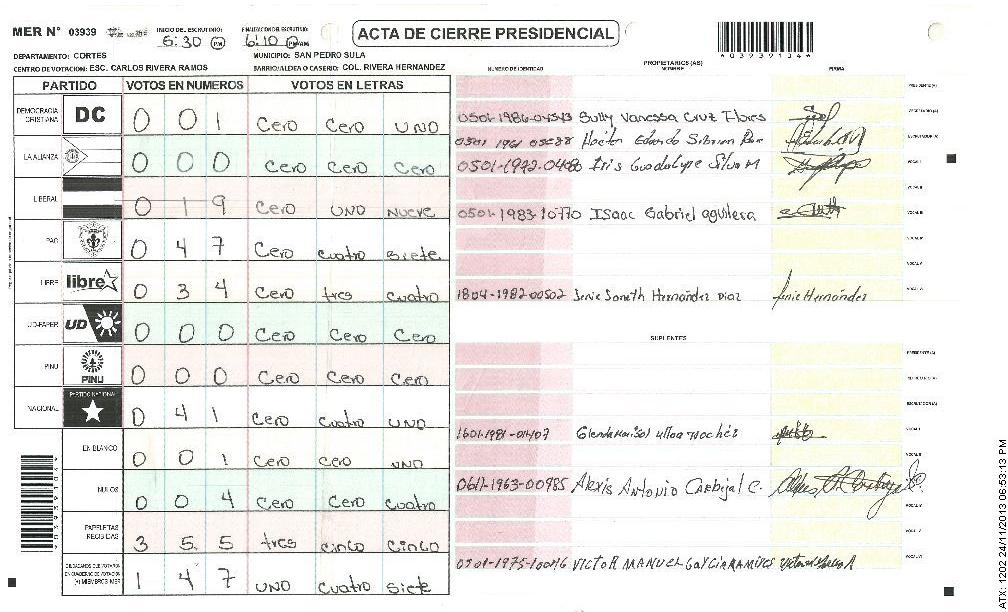 MER N° 03939
INICIO DEL ESCRUTINIO:
5:30 PM
FINALIZACION DEL ESCRUTINIO:
6:10 PM/AM
ACTA DE CIERRE PRESIDENCIAL
*03939134*
DEPARTAMENTO: CORTES
MUNICIPIO: SAN PEDRO SULA
CENTRO DE VOTACION: ESC. CARLOS RIVERA RAMOS
BARRIO/ALDEA O CASERIO: COL. RIVERA HERNANDEZ
NUMERO DE IDENTIDAD
PROPIETARIOS (AS)
NOMBRE
FIRMA
PARTIDO VOTOS EN NUMEROS VOTOS EN LETRAS
DEMOCRACIA CRISTIANA DC 0 0 1 Cero Cero UNO
LA ALIANZA 0 0 0 Cero Cero Cero
LIBERAL 0 1 9 Cero UNO Nueve
PAC 0 4 7 Cero cuatro siete
LIBRE libre 0 3 4 Cero tres cuatro
UD-FAPER UD 0 0 0 Cero Cero Cero
PINU PINU 0 0 0 Cero Cero Cero
NACIONAL PARTIDO NACIONAL 0 4 1 Cero cuatro UNO
EN BLANCO 0 0 1 Cero Cero UNO
NULOS 0 0 4 Cero Cero cuatro
PAPELETAS RECIBIDAS 3 5 5 tres cinco cinco
CIUDADANOS QUE VOTARON EN CUADERNO DE VOTACION (+) MIEMBROS MER 1 4 7 UNO cuatro siete
PRESIDENTE (A)
0501-1986-04543 Sully Vanessa Cruz Flores SECRETARIO (A)
Hector Edgardo ESCRUTADOR (A)
0501-1972-0448 Iris Guadalupe Silva M VOCAL I
VOCAL II
0501-1983-10770 Isaac Gabriel aguilera VOCAL III
VOCAL IV
VOCAL V
1804-1982-00502 Janeth Hernández Diaz Hernández
SUPLENTES
PRESIDENTE (A)
SECRETARIO (A)
ESCRUTADOR (A)
1601-1981-01407 Glenda Marisol Ulloa VOCAL I
VOCAL II
0611-1963-00985 Alexis Antonio Carbajal C.
VOCAL IV
0501-1975-10046 VICTOR MANUEL
ATX: 1202 24/11/2013 06:53:13 PM